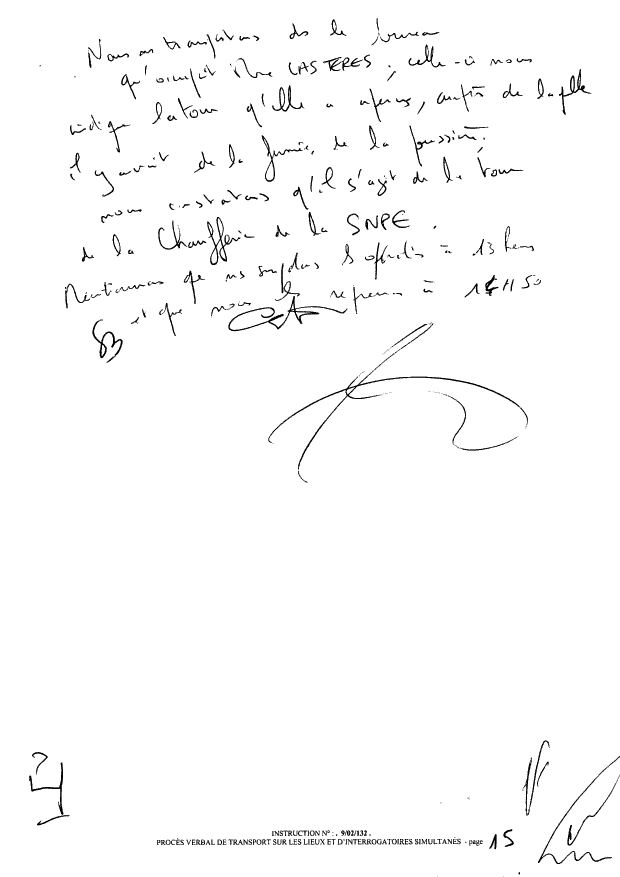 Nous ns transportons ds le bureau
qu'occupait Mme CASTERES, celle-ci nous
indique la tour qu'elle a aperçu, auprès de laquelle
il y avait de la fumée, de la poussière.
nous constatons qu'il s'agit de la tour
de la Chaufferie de la SNPE.
Mentionnons que ns suspdons ls opérations à 13 heures
et que nous ls reprenons à 14H50
INSTRUCTION N° : . 9/02/132 .
PROCÈS VERBAL DE TRANSPORT SUR LES LIEUX ET D'INTERROGATOIRES SIMULTANÉS - page 15